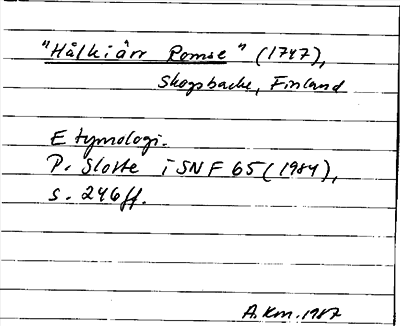 "Hålkiärr Romse" (1747),
Skogsbacke, Finland
Etymologi.
P. Slotte i SNF 65 (1984),
s. 246ff.
A. Km. 1987